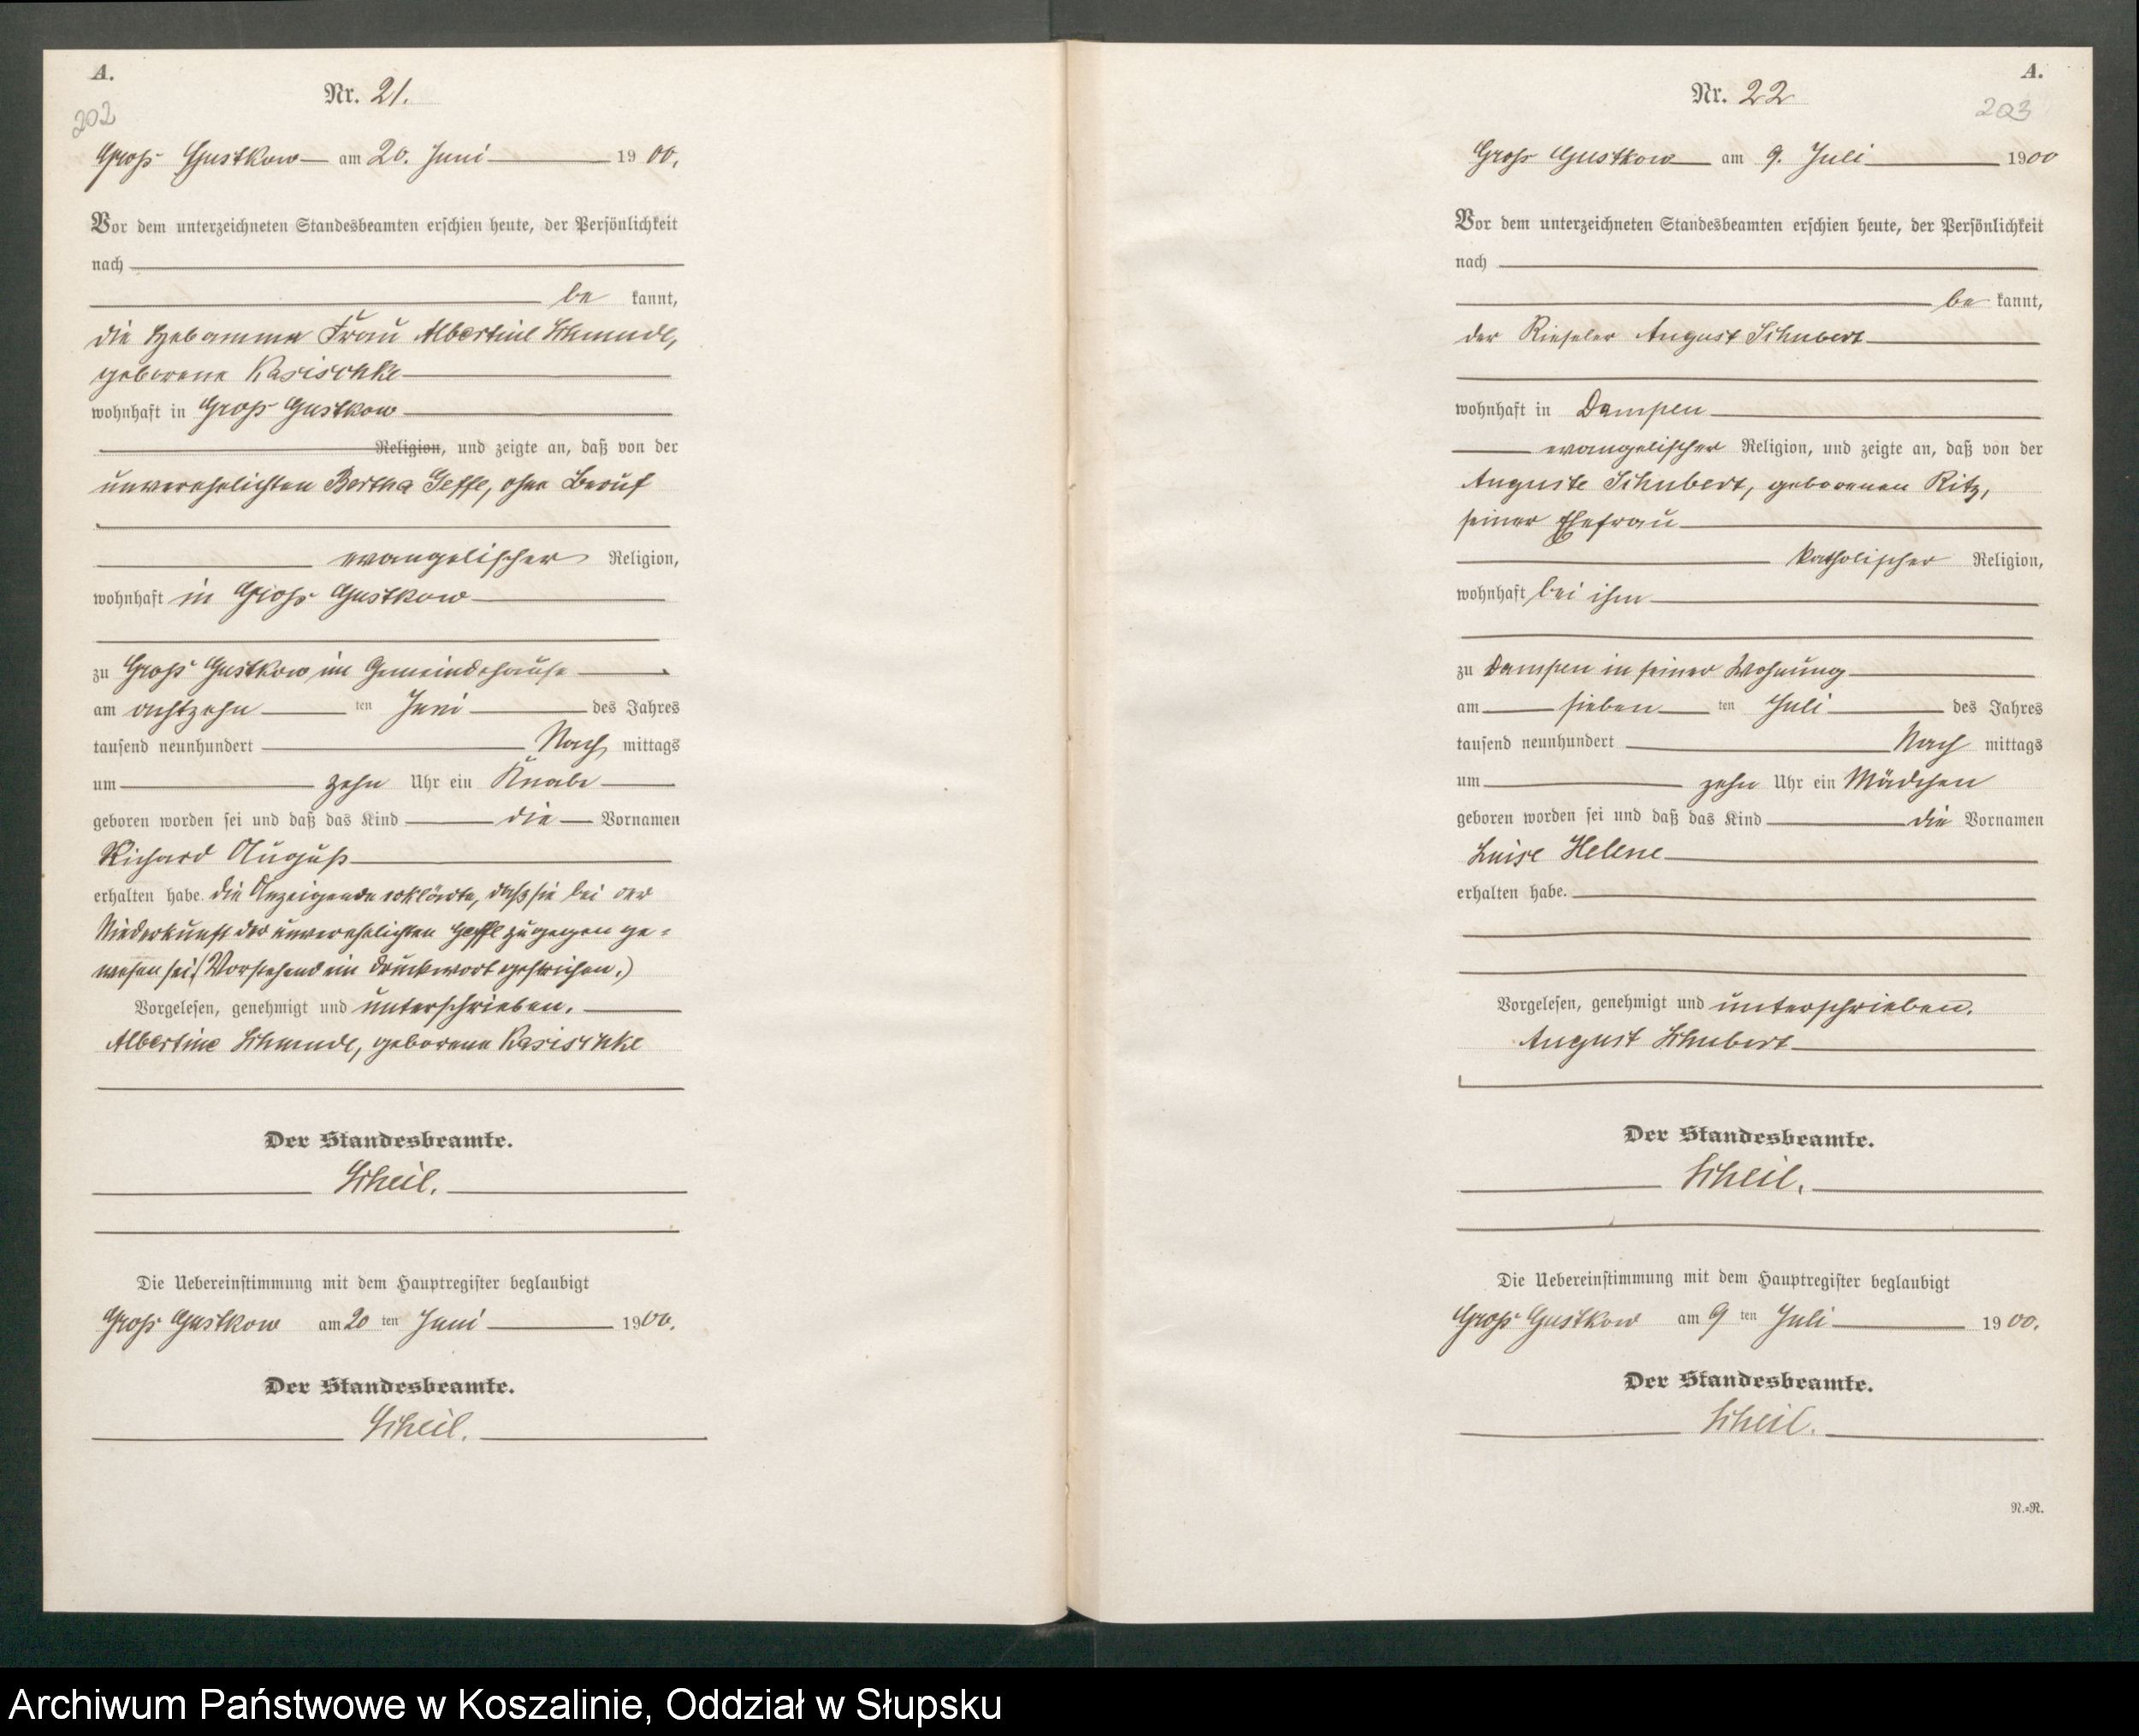 A.
Nr. 21.
202
Groß Gustkow am 20. Juni 1900.
Vor dem unterzeichneten Standesbeamten erschien heute, der Persönlichkeit
nach
be kannt,
die Hebamme Frau Albertine Schmude,
geborene Kasischke
wohnhaft in Groß Gustkow
Religion, und zeigte an, daß von der
unverehelichten Bertha Geffe, ohne Beruf
evangelischer Religion,
wohnhaft in Groß Gustkow
zu Groß Gustkow im Gemeindehause
am achtzehn ten Juni des Jahres
tausend neunhundert Nach mittags
um zehn Uhr ein Knabe
geboren worden sei und daß das Kind die Vornamen
Richard August
erhalten habe. Die Anzeigende erklärte, daß sie bei der
Niederkunft der unverehelichten Geffe zugegen ge-
wesen sei. (Vorstehend ein Druckwort gestrichen.)
Vorgelesen, genehmigt und unterschrieben.
Albertine Schmude, geborene Kasischke
Der Standesbeamte.
Scheil.
Die Uebereinstimmung mit dem Hauptregister beglaubigt
Groß Gustkow am 20 ten Juni 1900.
Der Standesbeamte.
Scheil.
A.
Nr. 22
203
Groß Gustkow am 9. Juli 1900
Vor dem unterzeichneten Standesbeamten erschien heute, der Persönlichkeit
nach
be kannt,
der Rieseler August Schubert
wohnhaft in Dampen
evangelischer Religion, und zeigte an, daß von der
Auguste Schubert, geborenen Ritz,
seiner Ehefrau
katholischer Religion,
wohnhaft bei ihm
zu Dampen in seiner Wohnung
am sieben ten Juli des Jahres
tausend neunhundert Nach mittags
um zehn Uhr ein Mädchen
geboren worden sei und daß das Kind die Vornamen
Luise Helene
erhalten habe.
Vorgelesen, genehmigt und unterschrieben.
August Schubert
Der Standesbeamte.
Scheil.
Die Uebereinstimmung mit dem Hauptregister beglaubigt
Groß Gustkow am 9 ten Juli 1900.
Der Standesbeamte.
Scheil.
N.=R.
Archiwum Państwowe w Koszalinie, Oddział w Słupsku